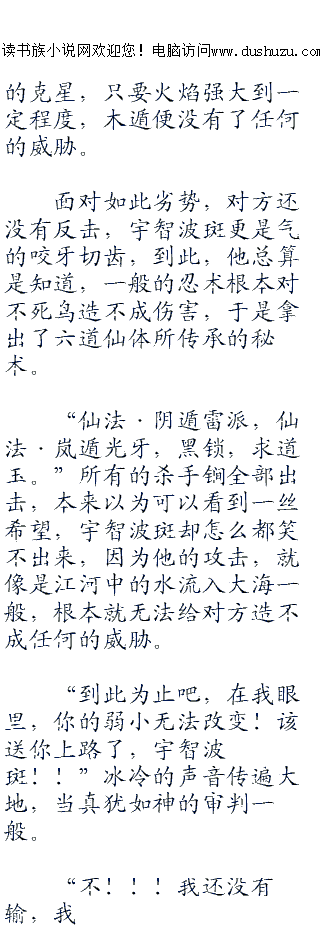 读书族小说网欢迎您！电脑访问www.dushuzu.com
的克星，只要火焰强大到一
定程度，木遁便没有了任何
的威胁。
面对如此劣势，对方还
没有反击，宇智波斑更是气
的咬牙切齿，到此，他总算
是知道，一般的忍术根本对
不死鸟造不成伤害，于是拿
出了六道仙体所传承的秘
术。
“仙法·阴遁雷派，仙
法·岚遁光牙，黑锁，求道
玉。”所有的杀手锏全部出
击，本来以为可以看到一丝
希望，宇智波斑却怎么都笑
不出来，因为他的攻击，就
像是江河中的水流入大海一
般，根本就无法给对方造不
成任何的威胁。
“到此为止吧，在我眼
里，你的弱小无法改变！该
送你上路了，宇智波
斑！！”冰冷的声音传遍大
地，当真犹如神的审判一
般。
“不！！！我还没有
输，我